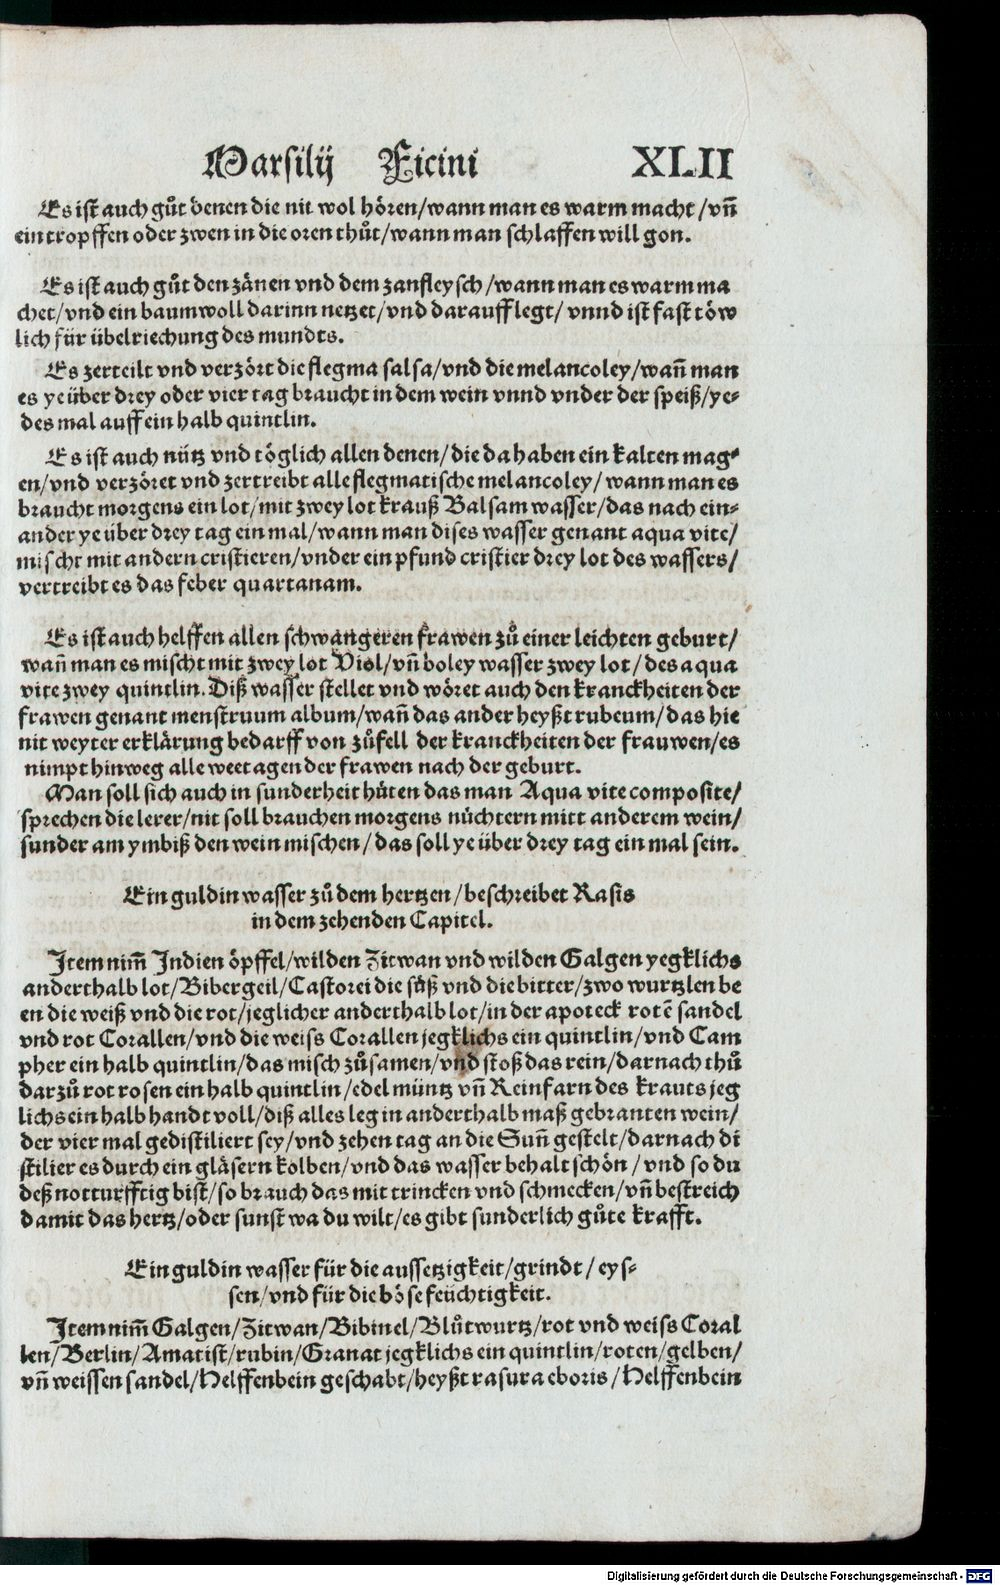 Marsilij Ficini XLII
Es ist auch gůt denen die nit wol hören/wann man es warm macht/vñ
ein tropffen oder zwen in die oren thůt/wann man schlaffen will gon.
Es ist auch gůt den zänen vnd dem zanfleysch/wann man es warm ma
chet/vnd ein baumwoll darinn netzet/vnd darauff legt/vnnd ist fast töw
lich für übelriechung des mundts.
Es zerteilt vnd verzört die flegma salsa/vnd die melancoley/wañ man
es ye über drey oder vier tag braucht in dem wein vnnd vnder der speiß/ye-
des mal auff ein halb quintlin.
Es ist auch nütz vnd töglich allen denen/die da haben ein kalten mag-
en/vnd verzöret vnd zertreibt alle flegmatische melancoley/wann man es
braucht morgens ein lot/mit zwey lot krauß Balsam wasser/das nach ein-
ander ye über drey tag ein mal/wann man dises wasser genant aqua vite/
mischt mit andern cristieren/vnder ein pfund cristier drey lot des wassers/
vertreibt es das feber quartanam.
Es ist auch helffen allen schwangeren frawen zů einer leichten geburt/
wañ man es mischt mit zwey lot Viol/vñ boley wasser zwey lot/des aqua
vite zwey quintlin. Diß wasser stellet vnd wöret auch den kranckheiten der
frawen genant menstruum album/wañ das ander heyßt rubeum/das hie
nit weyter erklärung bedarff von zůfell der kranckheiten der frauwen/es
nimpt hinweg alle weetagen der frawen nach der geburt.
Man soll sich auch in sunderheit hüten das man Aqua vite composite/
sprechen die lerer/nit soll brauchen morgens nüchtern mitt anderem wein/
sunder am ymbiß den wein mischen/das soll ye über drey tag ein mal sein.
Ein guldin wasser zů dem hertzen/beschreibet Rasis
in dem zehenden Capitel.
Item nim̃ Indien öpffel/wilden Zitwan vnd wilden Galgen yegklichs
anderthalb lot/Bibergeil/Castorei die süß vnd die bitter/zwo wurtzlen be
en die weiß vnd die rot/jeglicher anderthalb lot/in der apoteck rotē sandel
vnd rot Corallen/vnd die weiss Corallen jegklichs ein quintlin/vnd Cam
pher ein halb quintlin/das misch zůsamen/vnd stoß das rein/darnach thů
darzů rot rosen ein halb quintlin/edel müntz vñ Reinfarn des krauts jeg
lichs ein halb handt voll/diß alles leg in anderthalb maß gebranten wein/
der vier mal gedistiliert sey/vnd zehen tag an die Suñ gestelt/darnach di
stilier es durch ein gläsern kolben/vnd das wasser behalt schön/vnd so du
deß notturfftig bist/so brauch das mit trincken vnd schmecken/vñ bestreich
damit das hertz/oder sunst wa du wilt/es gibt sunderlich gůte krafft.
Ein guldin wasser für die aussetzigkeit/grindt/eys-
sen/vnd für die böse feüchtigkeit.
Item nim̃ Galgen/Zitwan/Bibinel/Blůtwurtz/rot vnd weiss Coral
len/Berlin/Amatist/rubin/Granat jegklichs ein quintlin/roten/gelben/
vñ weissen sandel/Helffenbein geschabt/heyßt rasura eboris/Helffenbein
Digitalisierung gefördert durch die Deutsche Forschungsgemeinschaft - DFG